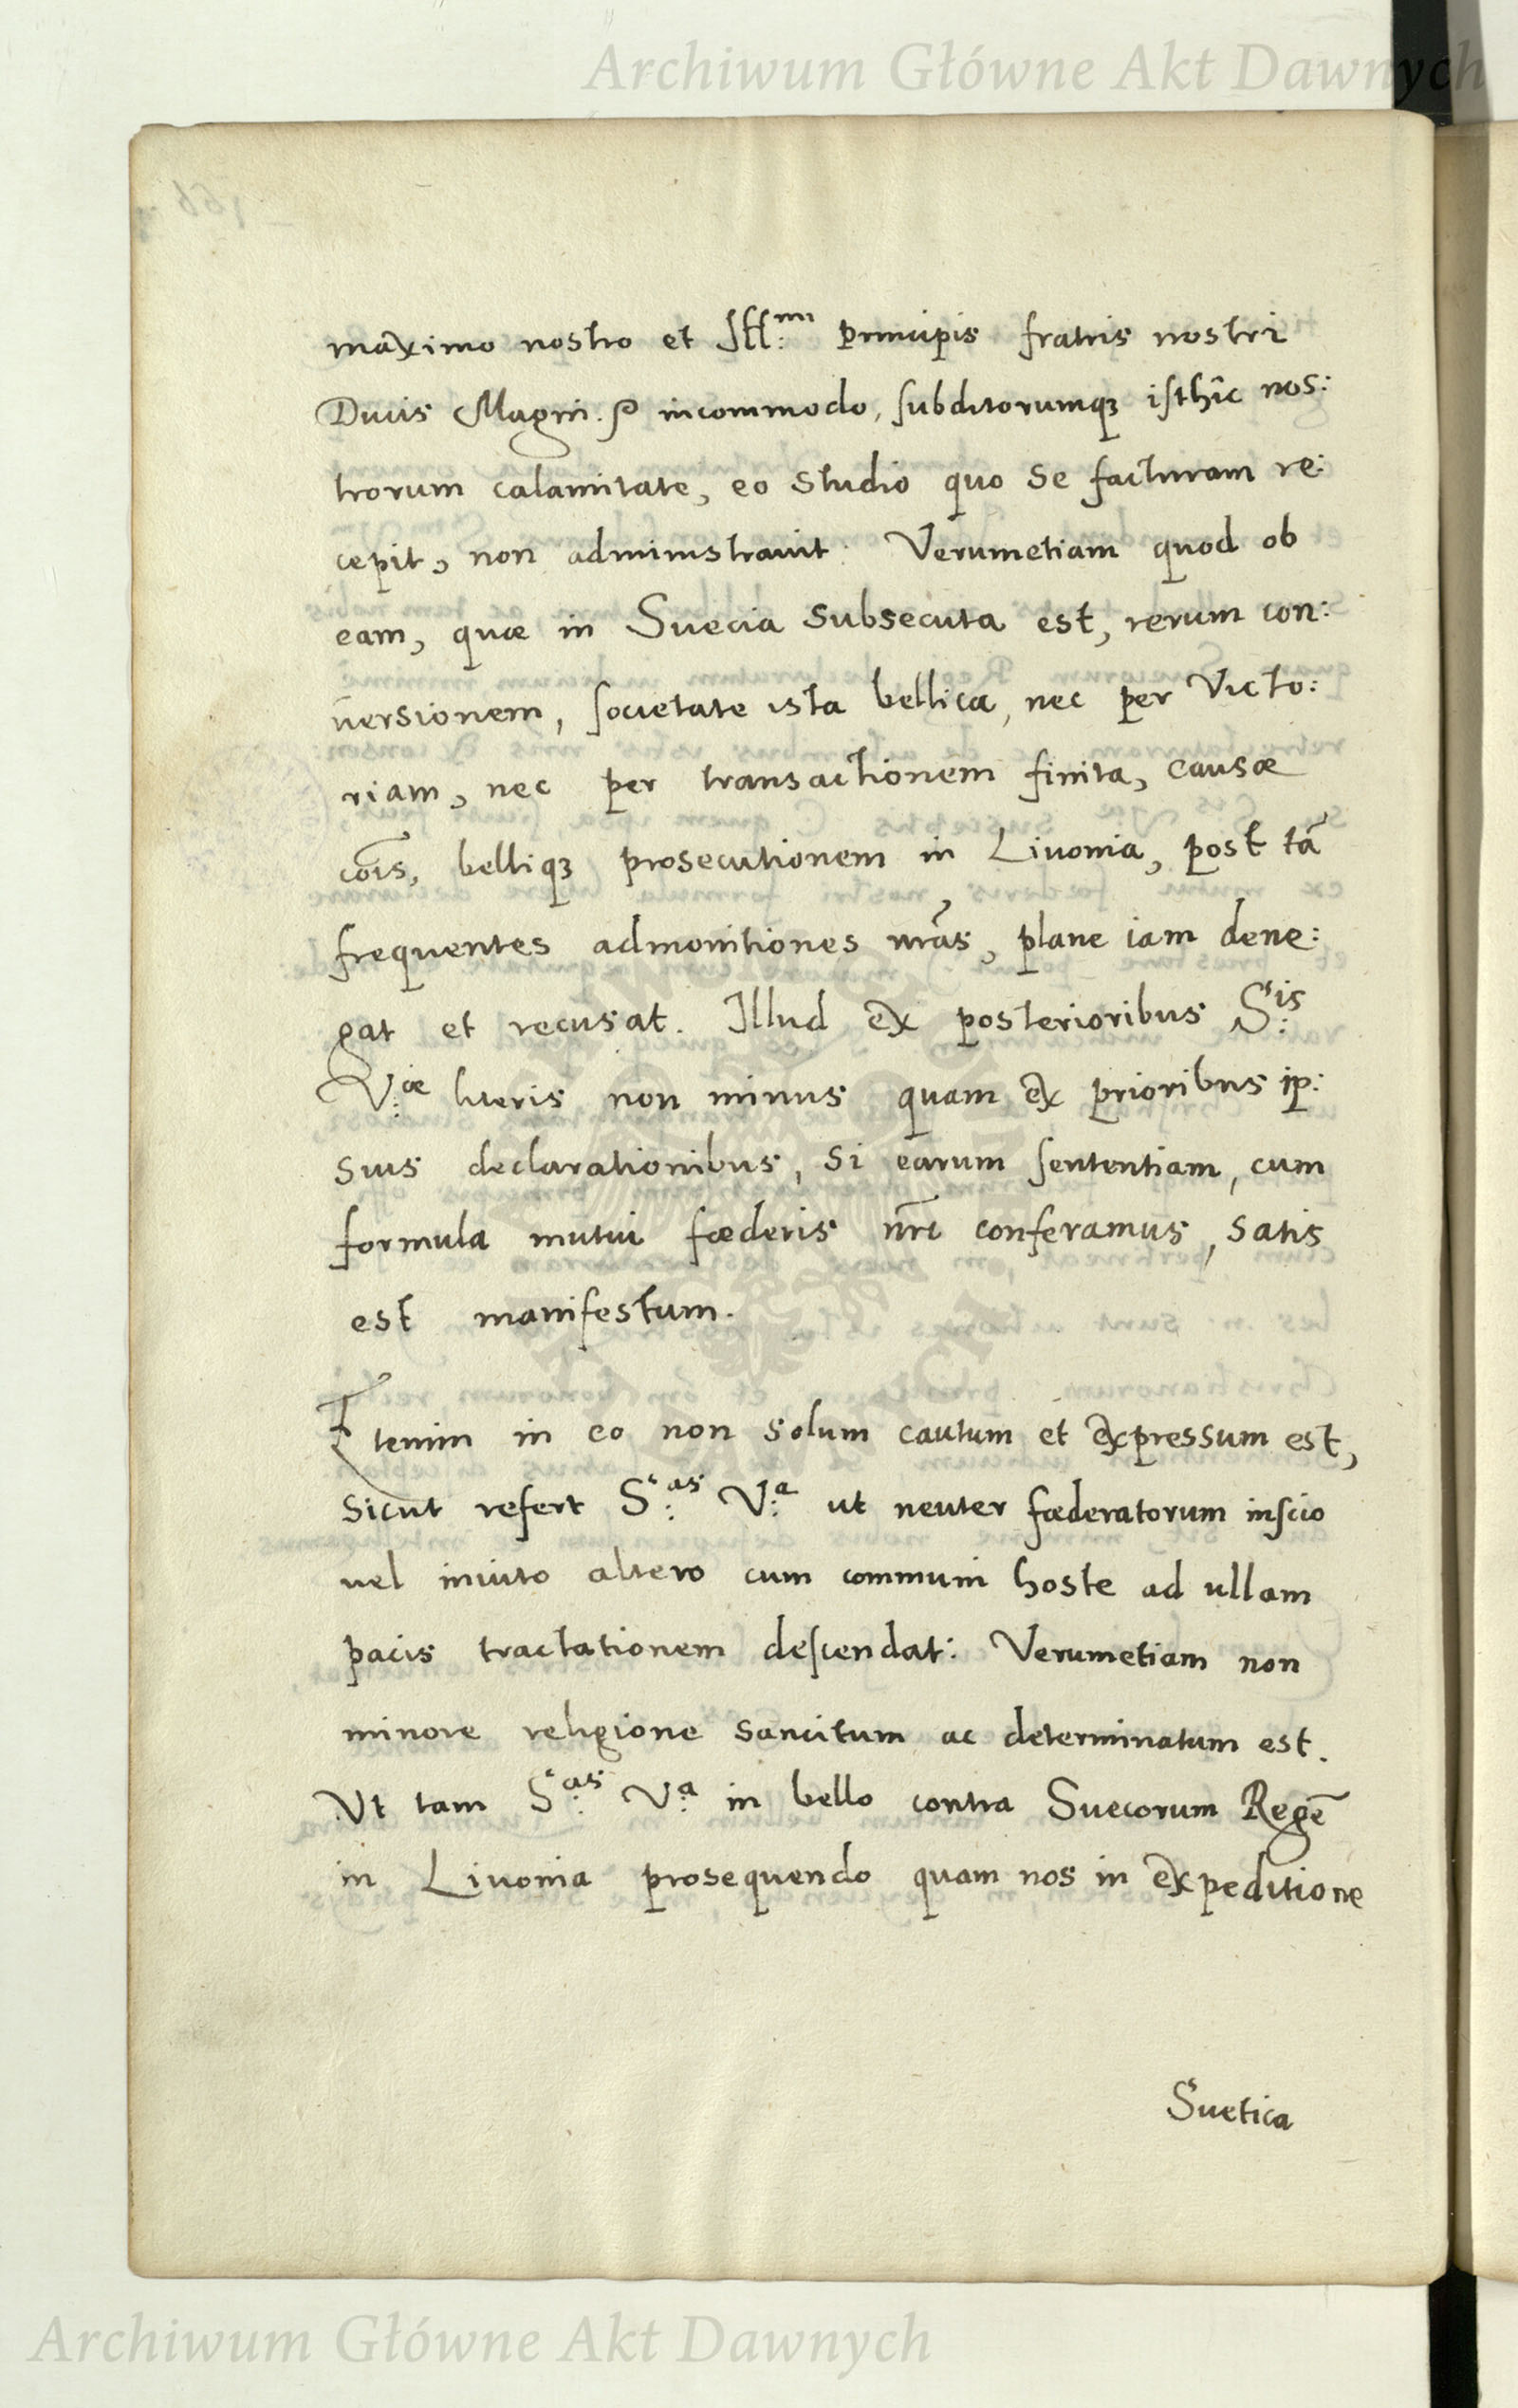 Archiwum Główne Akt Dawnych
maximo nostro et Ill:mi principis fratris nostri
Ducis Magni. incommodo, subditorumqꝫ isthîc nos:
trorum calamitate, eo studio quo se facturam re:
cepit, non administrauit. Verumetiam quod ob
eam, quæ in Suecia subsecuta est, rerum con:
uersionem, societate ista bellica, nec per Victo:
riam, nec per transactionem finita, causæ
cōis, belliqꝫ prosecutionem in Liuonia, post tā
frequentes admonitiones nr̄as, plane iam dene:
gat et recusat. Illud ex posterioribus S:is
V:æ literis non minus quam ex prioribus ip:
sius declarationibus, si earum sententiam, cum
formula mutui fœderis nr̄i conferamus, satis
est manifestum.
Etenim in eo non solum cautum et expressum est,
sicut refert S:as V:a ut neuter fœderatorum inscio
uel inuito altero cum communi hoste ad ullam
pacis tractationem descendat: Verumetiam non
minore religione sancitum ac determinatum est.
Vt tam S:as V:a in bello contra Suecorum Regē
in Liuonia prosequendo quam nos in expeditione
Suetica
Archiwum Główne Akt Dawnych